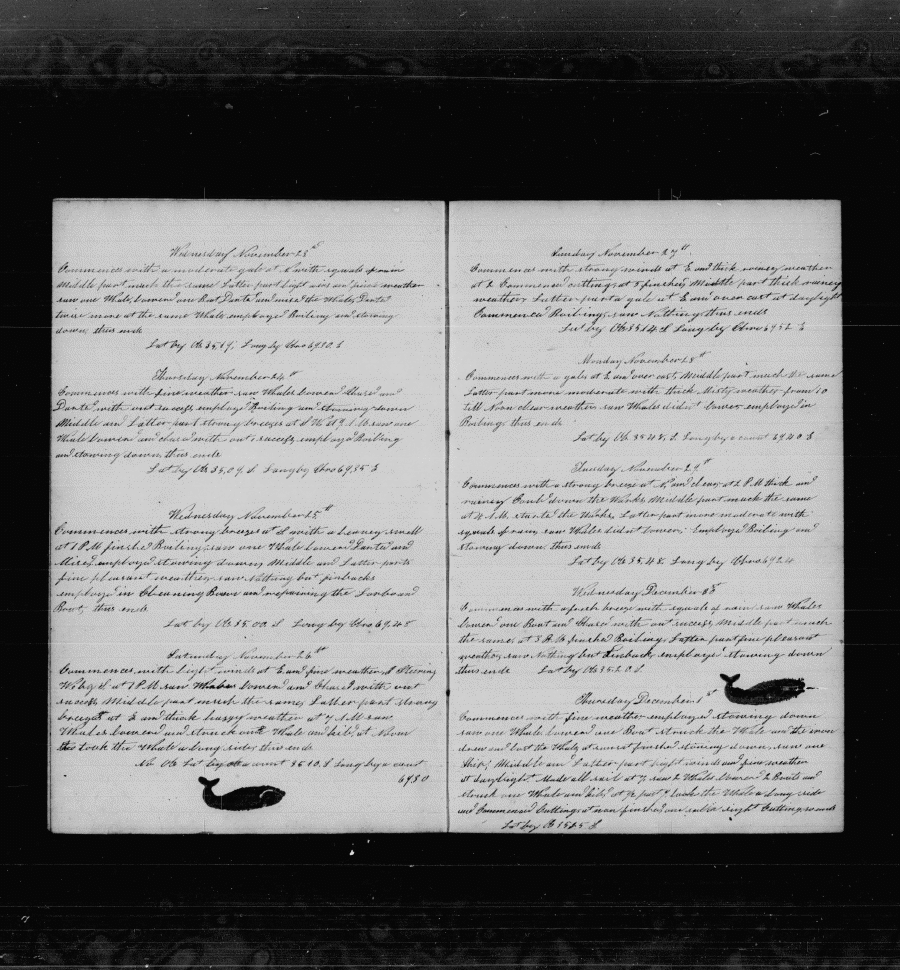 Wednesday November 23rd
Commences with a moderate gale at S with squals of rain
Middle part much the same Latter part light airs and fine weather
saw one Whale lowered one Boat Darted and missed the Whale, Darted
twice more at the same Whale employed Boiling and stowing
down, thus ends
Lat by Ob 35.19, Long by Chro 69.50 E
Thursday November 24th
Commences with fine weather saw Whales lowered Chased and
Darted with out success employed Boiling and stowing down
Middle and Latter part strong breezes at S W at 9 A.M saw one
Whale lowered and chased with out success employed Boiling
and stowing down, thus ends
Lat by Ob 35.09 S Long by Chro 69.55 E
Wednesday November 25th
Commences with strong breeze at S with a heavey swell
at 1 P.M finished Boiling, saw one Whale lowered Darted and
Missed, employed stowing down, Middle and Latter parts
fine pleasant weather, saw nothing but finbacks
employed in Cleaning Bown and repairing the Larboard
Boat, thus ends
Lat by Ob 35.00 S Long by Chro 69.45
Saturday November 26th
Commences with light winds at E and fine weather, Steering
W by S at 1 P.M saw Whales lowered and Chased with out
success Middle part much the same, Latter part strong
breezes at E and thick haggy weather at 7 A.M saw
Whales lowered and struck one Whale and kild, at Noon
took the Whale a long side, thus ends
No Ob Lat by a count 35 10 S Long by a count
69 30
Sunday November 27th
Commences with strong winds at E and thick raney weather
at 2 Commenced cutting, at 5 finished, Middle part thick rainey
weather, Latter part a gale at E and over cast at daylight
Commenced Boiling, saw Nothing, thus ends
Lat by Ob 35 14 S Long by Chro 69 52 E
Monday November 28th
Commences with a gale at E and over cast, Middle part much the same
Latter part more moderate with thick Misty weather from 10
till Noon clear weather saw Whales did not lower employed in
Boiling thus ends
Lat by Ob 35 45 S Long by a count 69 40 E
Tuesday November 29th
Commences with a strong breeze at E and clear, at 2 P.M thick and
rainey Coold down the Works, Middle part much the same
at 4 A.M started the Works, Latter part more moderate with
squals of rain, saw Whales did not lower, Employed Boiling and
stowing down thus ends
Lat by Ob 35.48 Long by Chro 69 24
Wednesday December
Commences with a fresh breeze with squals of rain saw Whales
lowered one Boat and Chased with out success, Middle part much
the same, at 3 A.M finished Boiling, Latter part fine pleasant
weather, saw Nothing but Finbacks, employed stowing down
thus ends Lat by Ob 35.20 S
Thursday December 1st
Commences with fine weather employed stowing down
saw one Whale lowered one Boat struck the Whale and the iron
drew and lost the Whale, at sunset finished stowing down, saw one
Ship, Middle and Latter part light winds and fine weather
at daylight Made all sail at 7 saw 2 Whales lowered 2 Boats and
struck one Whale and kild, at ½ past 9 took the Whale a long side
and Commenced Cutting, at noon finished
Lat by Ob S